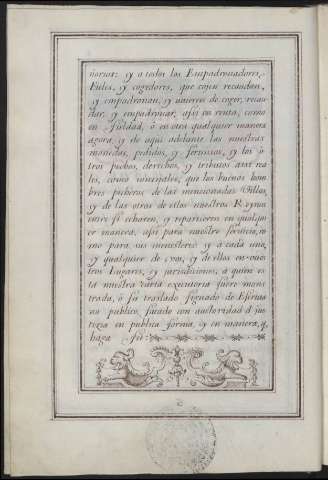 ñorias: y a todos los Empadronadores,
Fieles, y cogedores, que cojen recaudan,
y empadronan, y uvieren de coger, recau
dar, y empadronar, assi en renta, como
en fieldad, ò en otra qualquier manera
agora, y de aqui adelante las nuestras
monedas, pedidos, y servicios, y los ò
tros pechos, derechos, y tributos assi rea
les, como concejales, que los buenos hom
bres pecheros de las mencionadas Villas,
y de las otras de estos nuestros Reynos
entre si echaren, y repartieren en qualqui
er manera, assi para nuestro servicio, co
mo para sus menesteres y à cada uno,
y qualquier de vos, y de ellos en vues
tros Lugares, y jurisdiciones, a quien es
ta nuestra carta executoria fuere mons
trada, ò su traslado signado de Escriva
no publico, sacado con autoridad d jus
ticia en publica forma, y en manera, q.
haga fee: